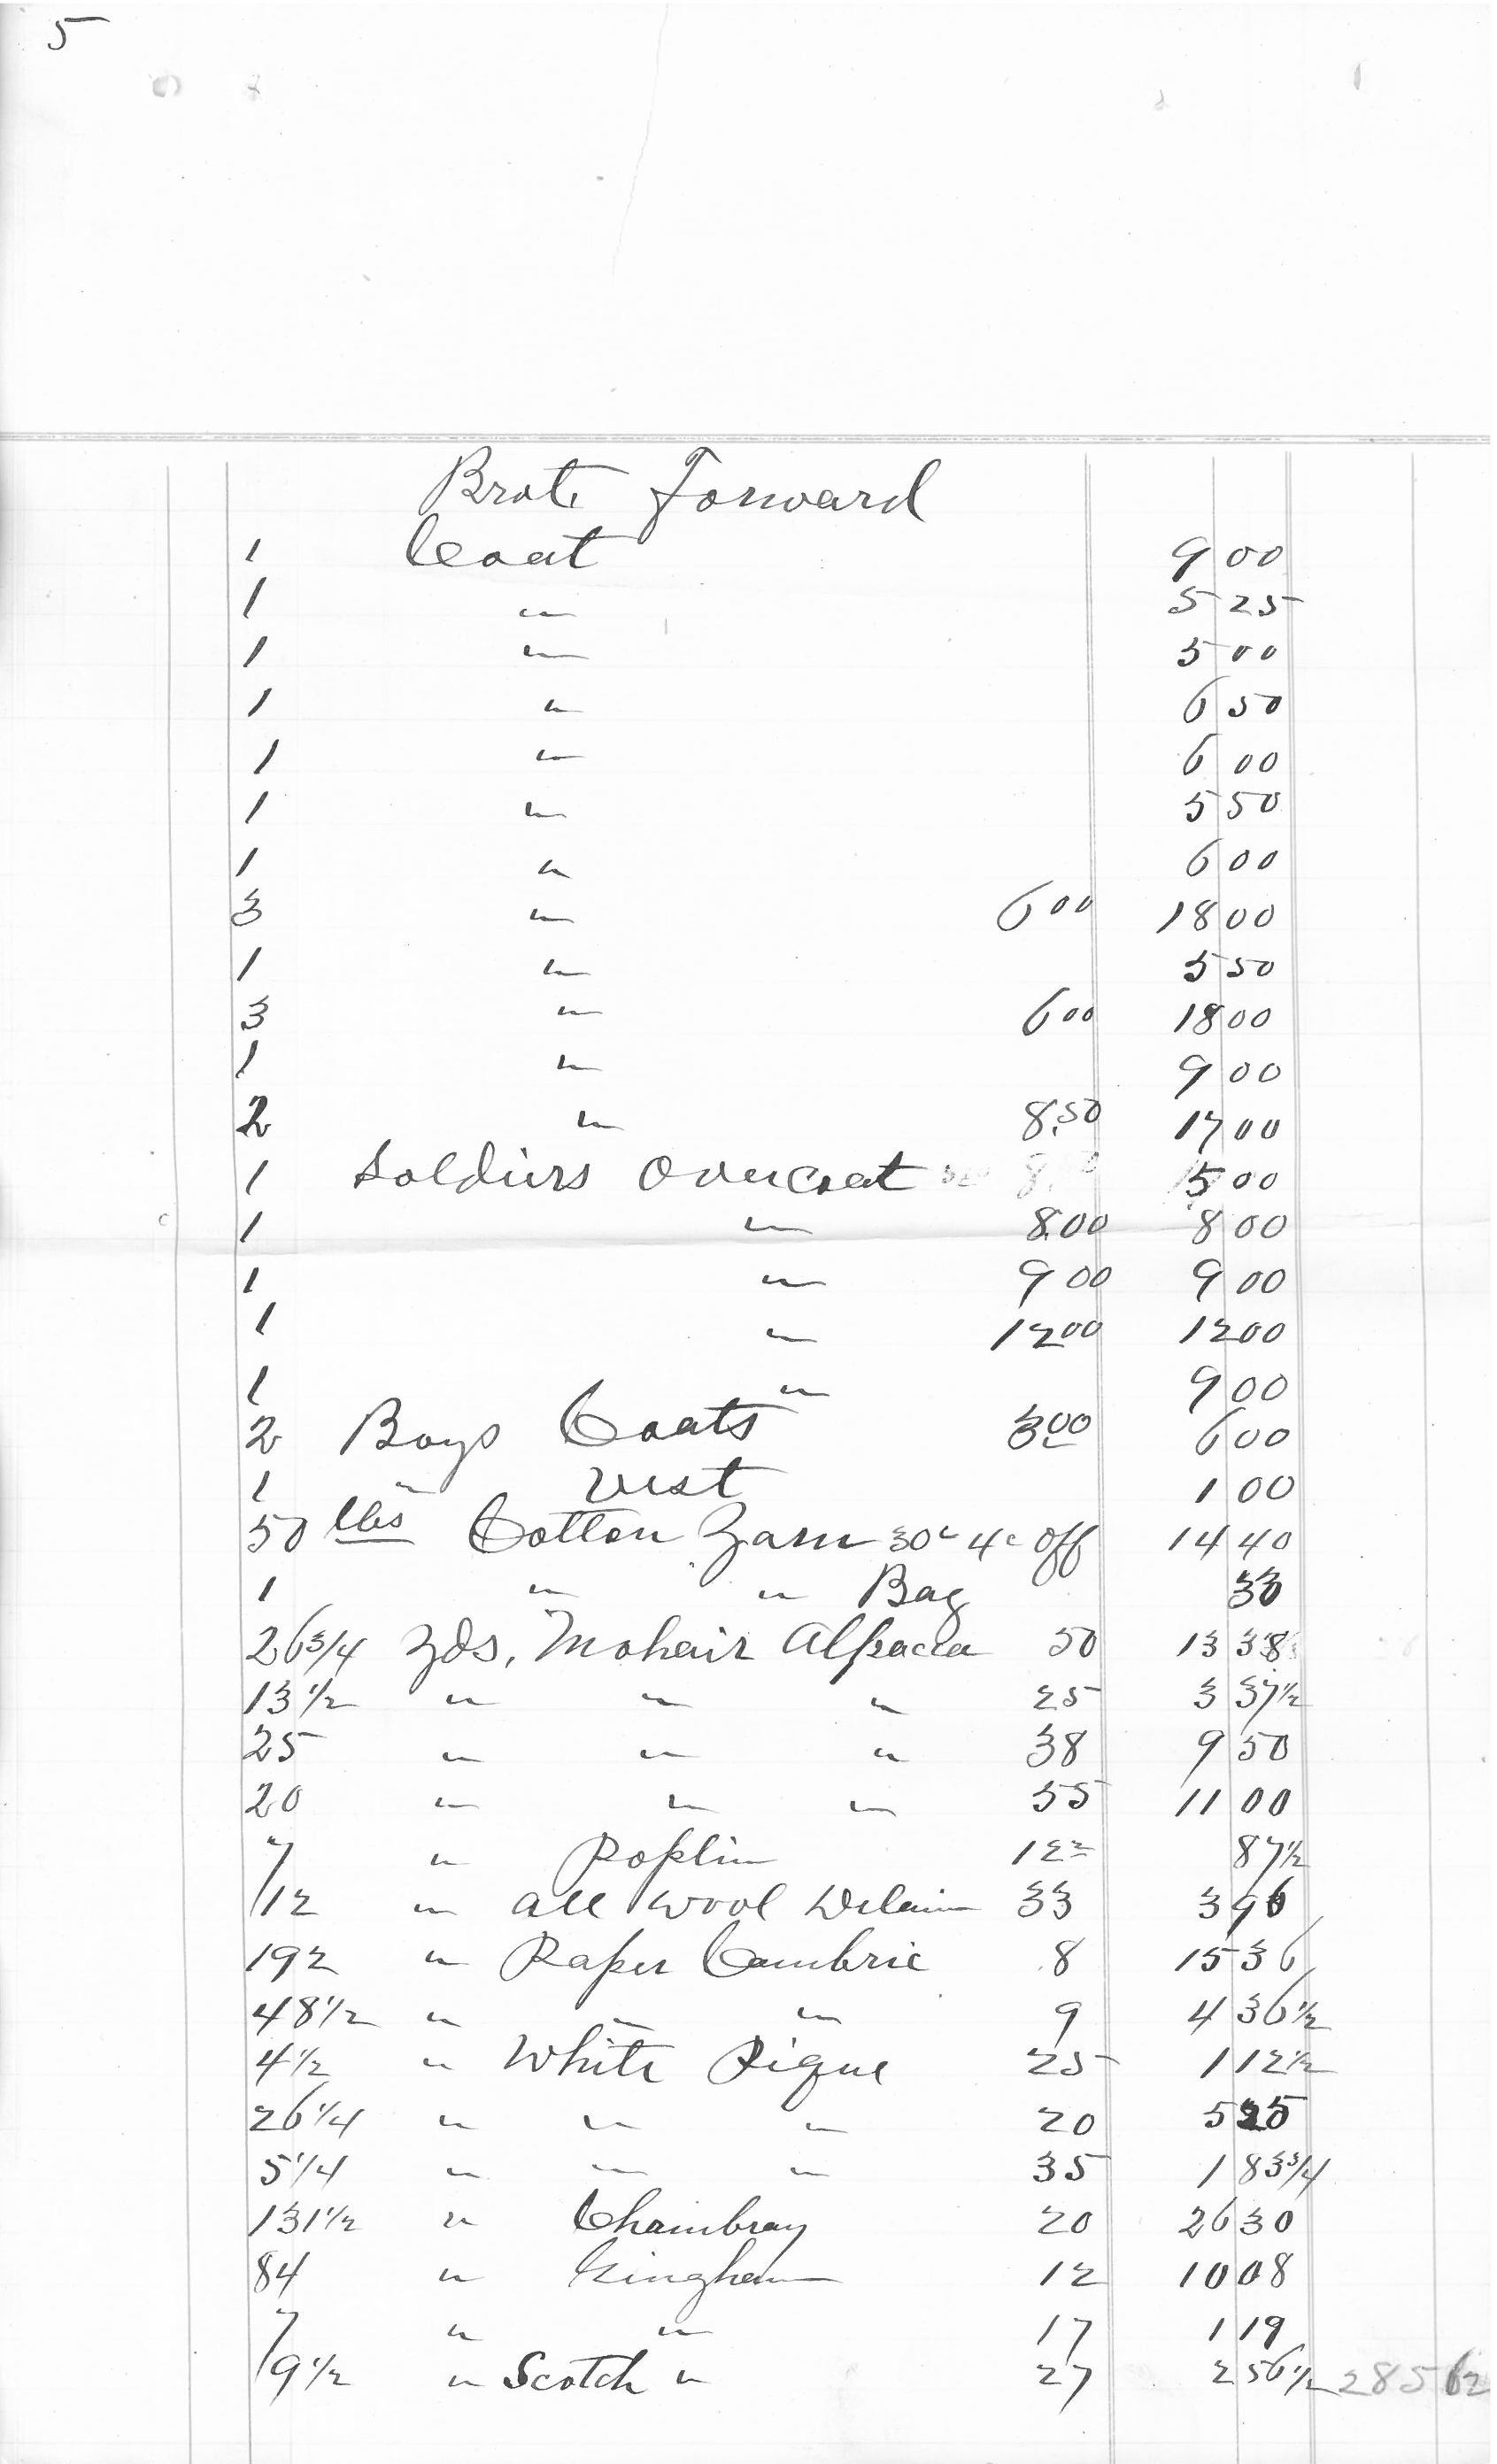 5
Brot. Forward
1 Coat 9 00
1 " 5 25
1 " 5 00
1 " 6 50
1 " 6 00
1 " 5 50
1 " 6 00
3 " 6 00 18 00
1 " 5 50
3 " 6 00 18 00
1 " 9 00
2 " 8.50 17 00
1 Soldiers Overcoat 5 00
1 " 8.00 8 00
1 " 9 00 9 00
1 " 12 00 12 00
1 " 9 00
2 Boys Coats 3 00 6 00
1 " Vest 1 00
50 lbs Cotton Yarn 30c 4c Off 14 40
1 " " Bag 30
26 3/4 Yds. Mohair Alpacca 50 13 38
13 1/2 " " " 25 3 37 1/2
25 " " " 38 9 50
20 " " " 55 11 00
7 " Poplin 12 1/2 87 1/2
12 " All Wool Delain 33 3 96
192 " Paper Cambric 8 15 36
48 1/2 " " " 9 4 36 1/2
4 1/2 " White Pique 25 1 12 1/2
26 1/4 " " " 20 5 25
5 1/4 " " " 35 1 83 3/4
131 1/2 " Chambray 20 26 30
84 " Gingham 12 10 08
7 " " 17 1 19
9 1/2 " Scotch " 27 2 56 1/2 285 62